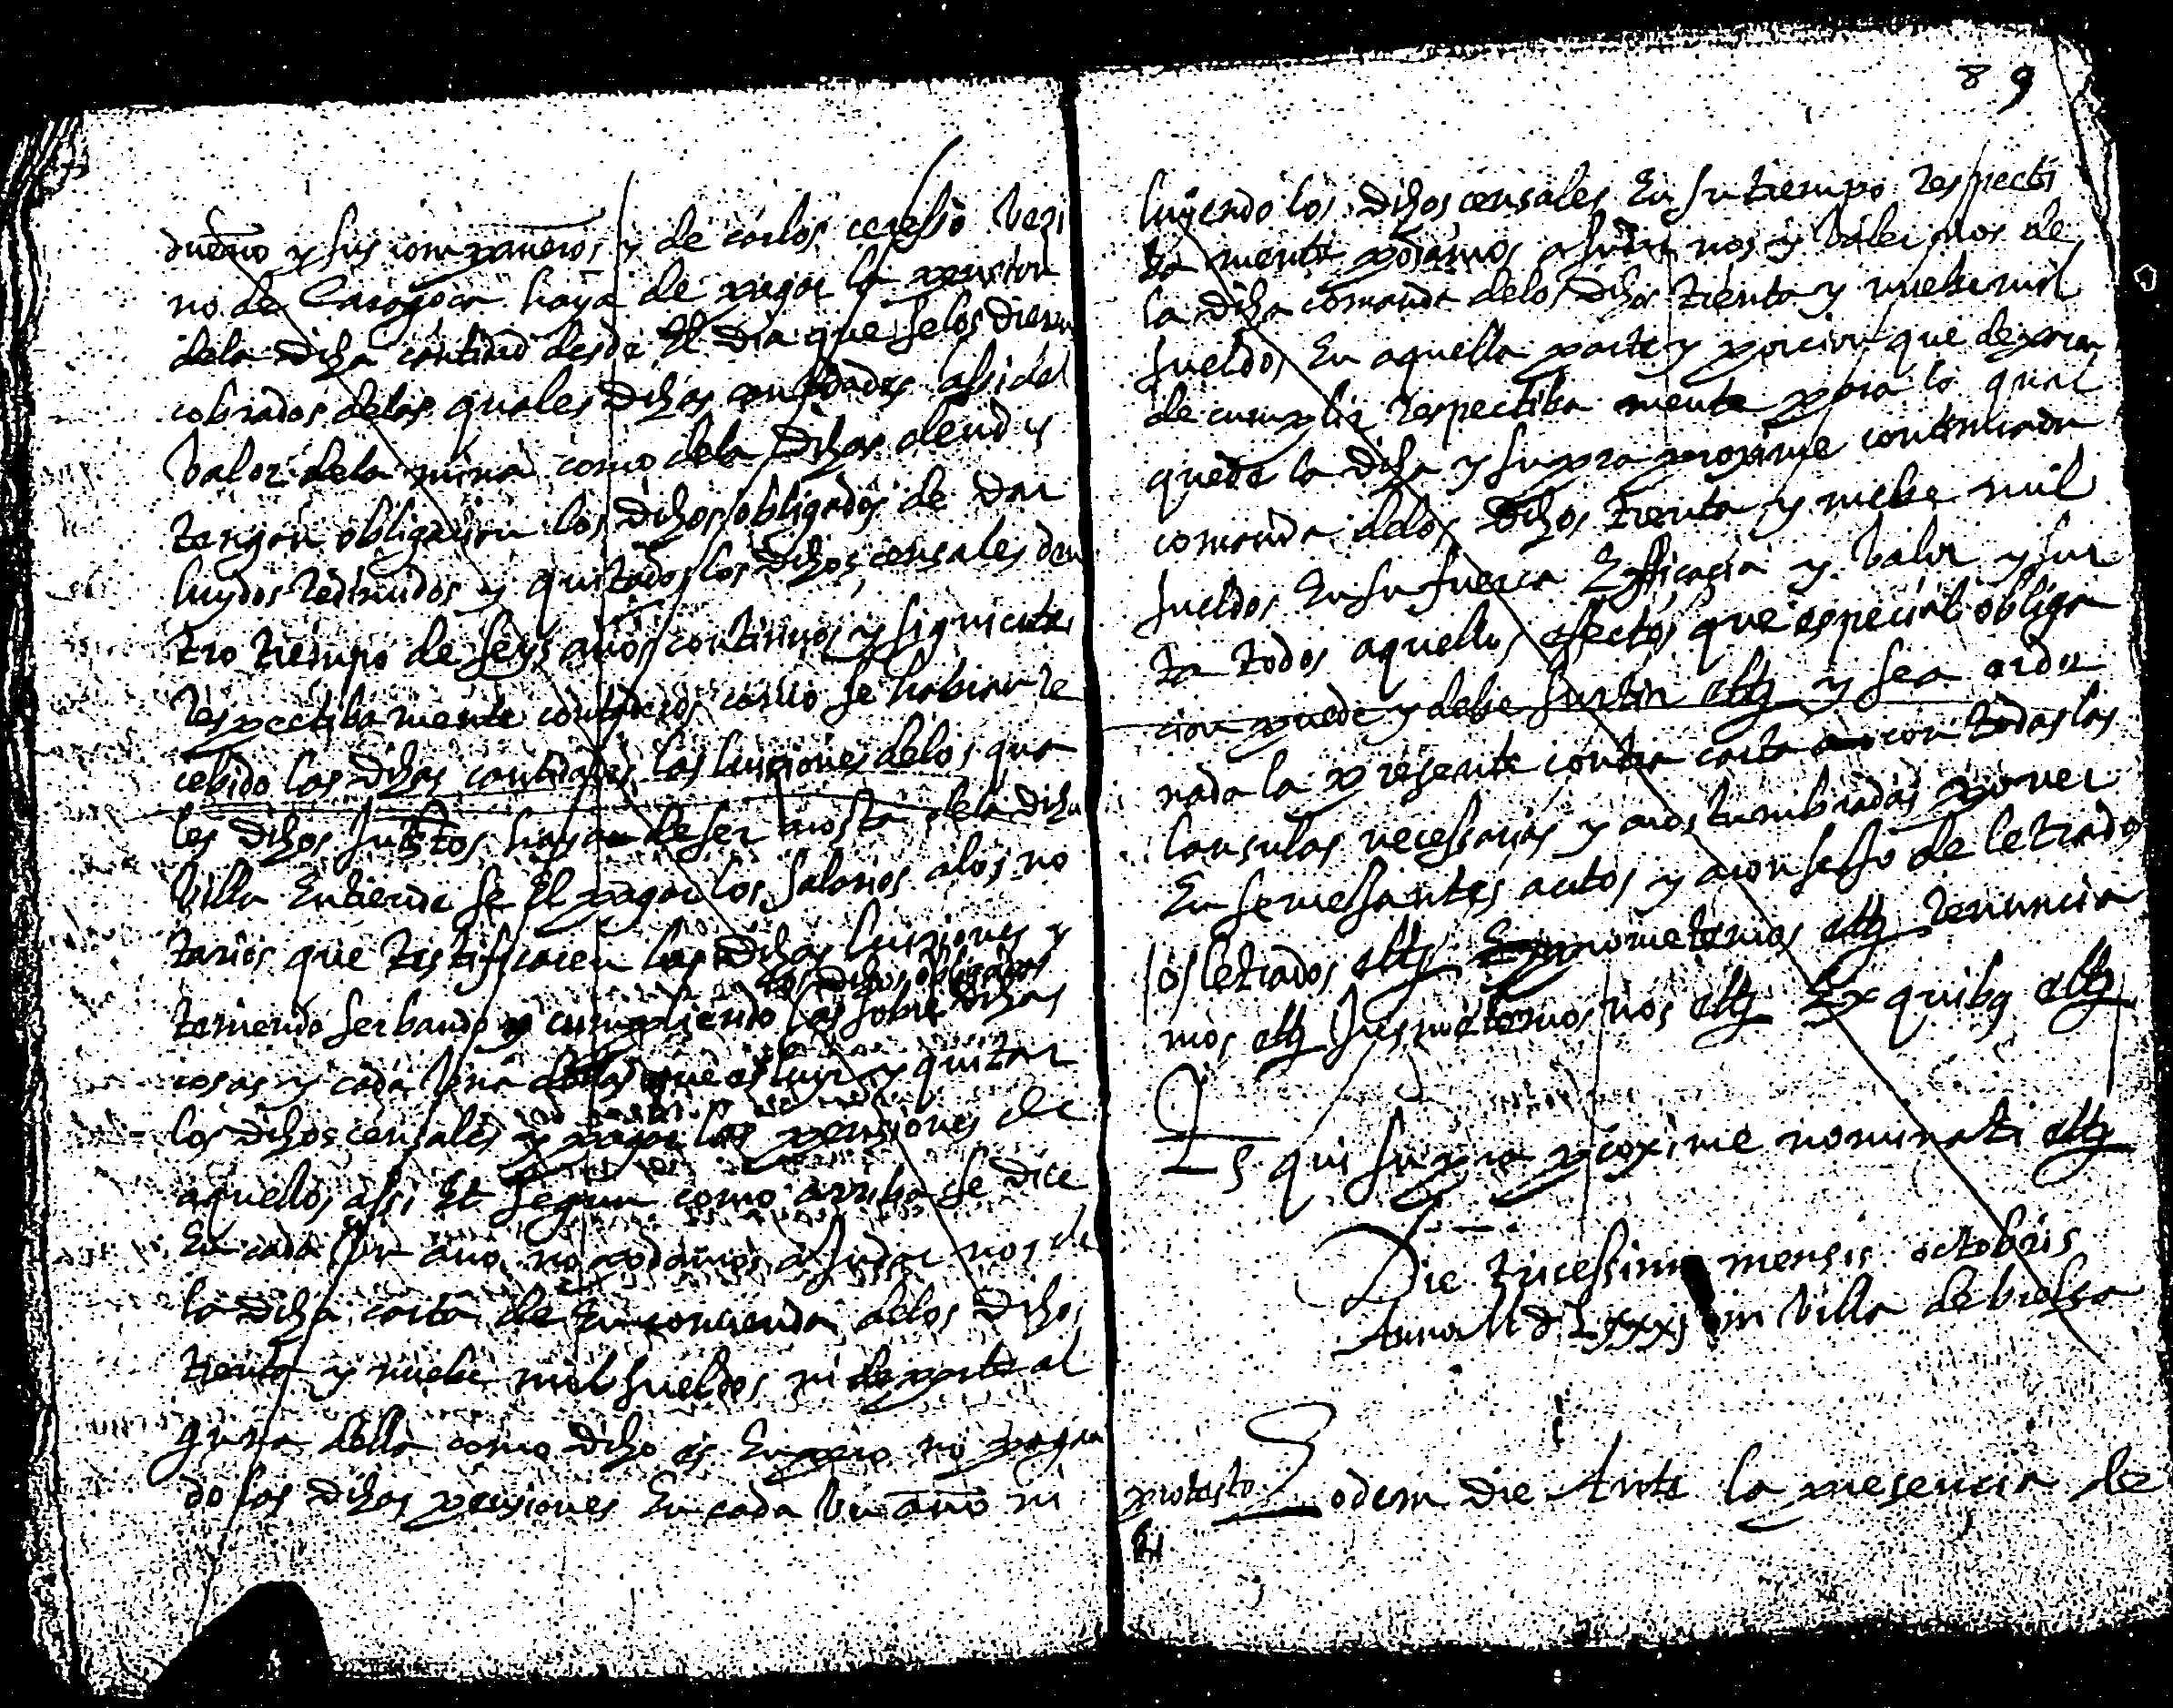 dueño y sus compañeros y de carlos ceressio vezi
no de Caragoça haya de pagar la pension
dela dicha cantidad desde El dia que se los dieren
cobrados delas quales dichas cantidades assi del
valor dela mina como dela dichas deudas
tengan obligacion los dichos obligados de dar
luydos redimidos y quitados los dichos censales den
tro tiempo de seys años continuos y siguientes
respectibamente contaderos como se habian re
cebido las dichas cantidades las luiciones delos qua
les dichos hayan de ser a costa dela dicha
villa Entiende se El pagar los salarios alos no
tarios que testificaren las dichas luiziones y
los dichos obligados
teniendo serbando y cumpliendo las sobre dichas
cosas y cada una dellas que es luyr y quitar
los dichos censales y pagar las pensiones de
aquellos assi Et segun como arriba se dice
En cada un año no podamos ajudar nos de
la dicha carta de Encomienda delos dichos
trenta y nuebe mil sueldos ni de parte al
guna della como dicho es Empero no pagan
do las dichas pensiones En cada un año ni
89
luyendo los dichos censales En su tiempo respecti
ba mente podamos ajudar nos y valer nos de
la dicha comanda delos dichos trenta y nuebe mil
sueldos En aquella parte y porcion que dexaren
de cumplir respectiba mente para lo qual
quede la dicha y supra proxime contenciada
comanda delos dichos trenta y nuebe mil
sueldos En su fuerça Efficacia y valor y sur
ta todos aquellos efectos que especial obliga
cion puede y debe surtir etc y sea ordi
nada la presente contra carta con todas las
clausulas necessarias y acostumbradas poner
En semejantes actos y a consejo de letrado
o letrados etc prometemos etc renuncia
mos etc jusmetemos nos etc Ex quibus etc
Ts qui supra proxime nominati etc
Die tricessimo mensis octobris
Anno M d Lxxxj in villa de bielsa
protesto
Eodem die Ante la presencia de